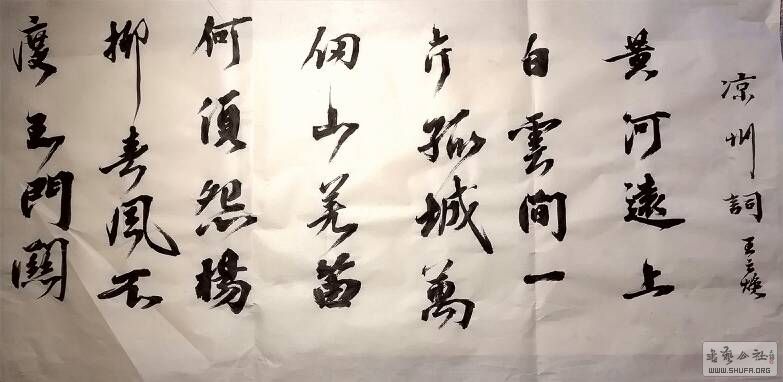 凉州詞 王之焕
黄河遠上
白雲間一
片孤城萬
仞山羌笛
何須怨楊
柳春風不
度玉門關
書藝公社
WWW.SHUFA.ORG